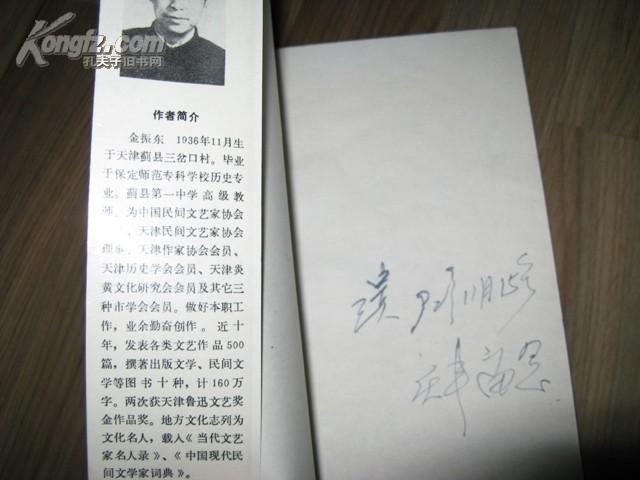 Kongfz.com
孔夫子旧书网
作者简介
金振东 1936年11月生
于天津蓟县三岔口村。毕业
于保定师范专科学校历史专
业。蓟县第一中学高级教
师。为中国民间文艺家协会
、天津民间文艺家协会
理事、天津作家协会会员、
天津历史学会会员、天津炎
黄文化研究会会员及其它三
种市学会会员。做好本职工
作，业余勤奋创作。近十
年，发表各类文艺作品500
篇，撰著出版文学、民间文
学等图书十种，计160万
字。两次获天津鲁迅文艺奖
金作品奖。地方文化志列为
文化名人，载入《当代文艺
家名人录》、《中国现代民
间文学家词典》。